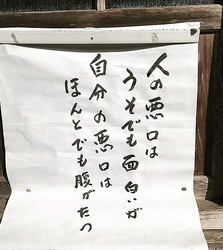 人の悪口は
うそでも面白いが
自分の悪口は
ほんとでも腹がたつ